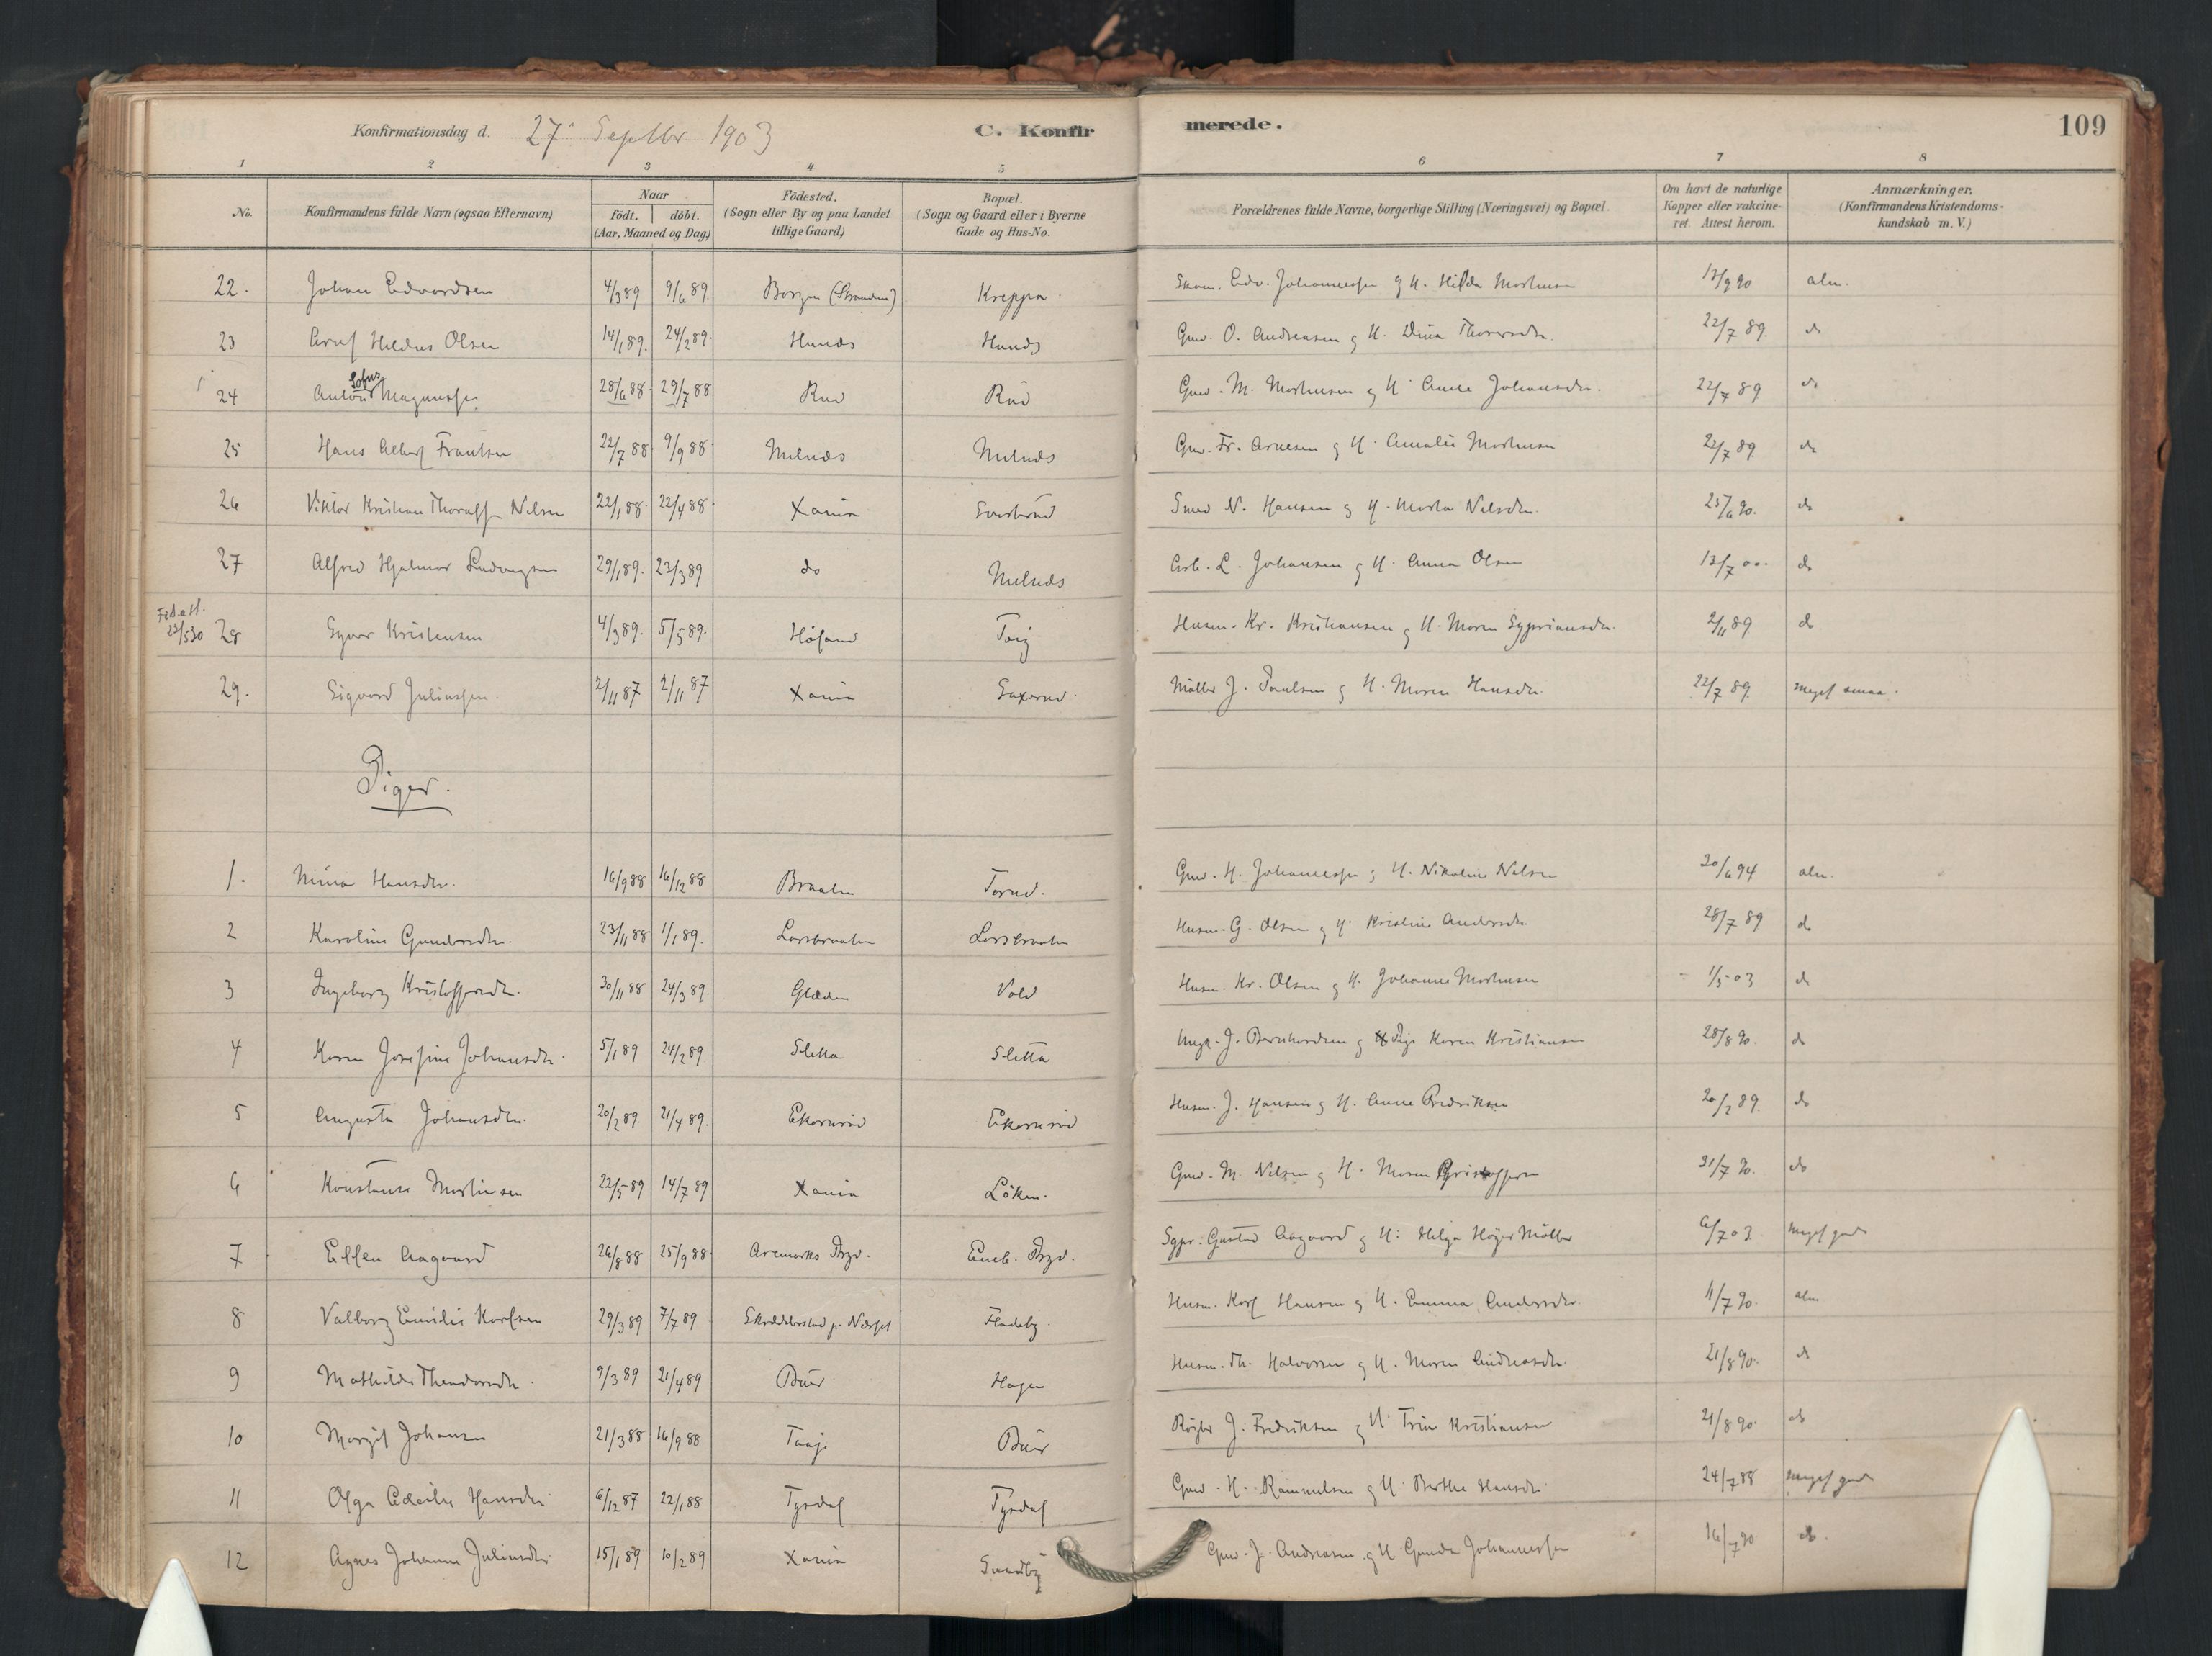 Konfirmationsdag d. 27. Septbr 1903 C. Konfirmerede. 109
1 2 3 4 5 6 7 8
No. Konfirmandens fulde Navn (ogsaa Efternavn) Naar födt. döbt. (Aar, Maaned og Dag) Födested. (Sogn eller By og paa Landet tillige Gaard) Bopæl. (Sogn og Gaard eller i Byerne Gade og Hus-No. Forældrenes fulde Navne, borgerlige Stilling (Næringsvei) og Bopæl. Om havt de naturlige Kopper eller vakcineret. Attest herom. Anmærkninger. (Konfirmandens Kristendomskundskab m. V.)
22. Johan Edvardsen 4/3 89 9/6 89. Borgen (Stranden) Kreppa Edv. Johannessen og H. Hilda Mathisen 13/9 90 alm.
23 Hildus Olsen 14/1 89. 24/2 89. Hunds Hunds Gmd. O. Andreasen og H. Dina Thorersdtr. 22/7 89. do
24 Anton Sofus Magnussen 28/6 88. 29/7 88 Rud Rud Gmd. M. Mathisen og H. Anne Johansdtr. 22/7 89 do
25 Hans Albert Frantsen 22/7 88. 9/9 88. Melnds Melnds Gmd. Fr. Arnesen og H. Amalie Mathisen 22/7 89. do
26 Viktor Kristian Nilsen 22/1 88. 22/4 88. Xania Smed N. Hansen og H. Marta Nilsdtr. 25/6 90. do
27 Alfred Hjalmar Ludvigsen 29/1 89. 23/3 89 do Melnds Arb. L. Johansen og H. Anna Olsen 13/7 00. do
Föd. att. 23/5 30 28 Syver Kristiansen 4/3 89. 5/5 89. Höland Teig Husm. Kr. Kristiansen og H. Maren Sypriansdtr. 2/11 89 do
29. Sigvard Juliussen 2/11 87 2/11 87 Xania Saxerud Möller J. Paulsen og H. Maren Hansdtr. 22/7 89. meget smaa.
Piger.
1. Mina Hansdtr. 16/9 88 16/12 88 Braaten Torud. Gmd. H. Johannessen og H. Nikoline Nilsen 20/6 94 alm.
2 Karoline Gundersdtr. 23/11 88 1/1 89. Larsbraaten Larsbraaten Husm. G. Olsen og H. Kristine Andersdtr. 28/7 89 do
3 Ingeborg Kristoffersdtr. 30/11 88 24/3 89. Glæden Vold Husm. Kr. Olsen og H. Johanne Mathisen 1/5 03 do
4 Karen Josefine Johansdtr. 5/1 89 24/2 89 Sletta Sletta Ungk. J. Bernhardsen og Pige Karen Kristiansen 28/8 90. do
5 Augusta Johansdtr. 20/2 89. 21/4 89. Ekornrud Ekornrud Husm. J. Hansen og H. Anne Fredriksen 20/2 89. do
6 Konstanse Martinsen 22/5 89 14/7 89 Xania Löken. Gmd. M. Nilsen og H. Maren Kristoffersen 31/7 90. do
7 Ellen Aagaard 26/8 88 25/9 88. Aremarks Prgd. Eneb. Prgd. Sgpr. Gustav Aagaard og H. Helga Höjer Möller 6/7 03 meget god
8 Valborg Emilie Karlsen 29/3 89 7/7 89 Skrædderstad p. Næsset Fladeby Husm. Karl Hansen og H. Emma Andersdtr. 11/7 90. alm
9 Mathilde Theodorsdtr. 9/3 89 21/4 89 Buer Hagen Husm. Th. Halvorsen og H. Maren Andreasdtr. 21/8 90. do
10 Margit Johansen 21/3 88 16/9 88 Buer J. Fredriksen og H. Trine Kristiansen 21/8 90. do
11 Olga Cecilie Hansdtr. 6/12 87 22/1 88 Tyrdal Tyrdal Gmd. H. Rammelsen og H. Berthe Hansdtr. 24/7 88 meget god
12 Agnes Johanne Juliusdtr. 15/1 89 10/2 89 Xania Sundby Gmd. J. Andreasen og H. Gunda Johannessen 16/7 90 do.